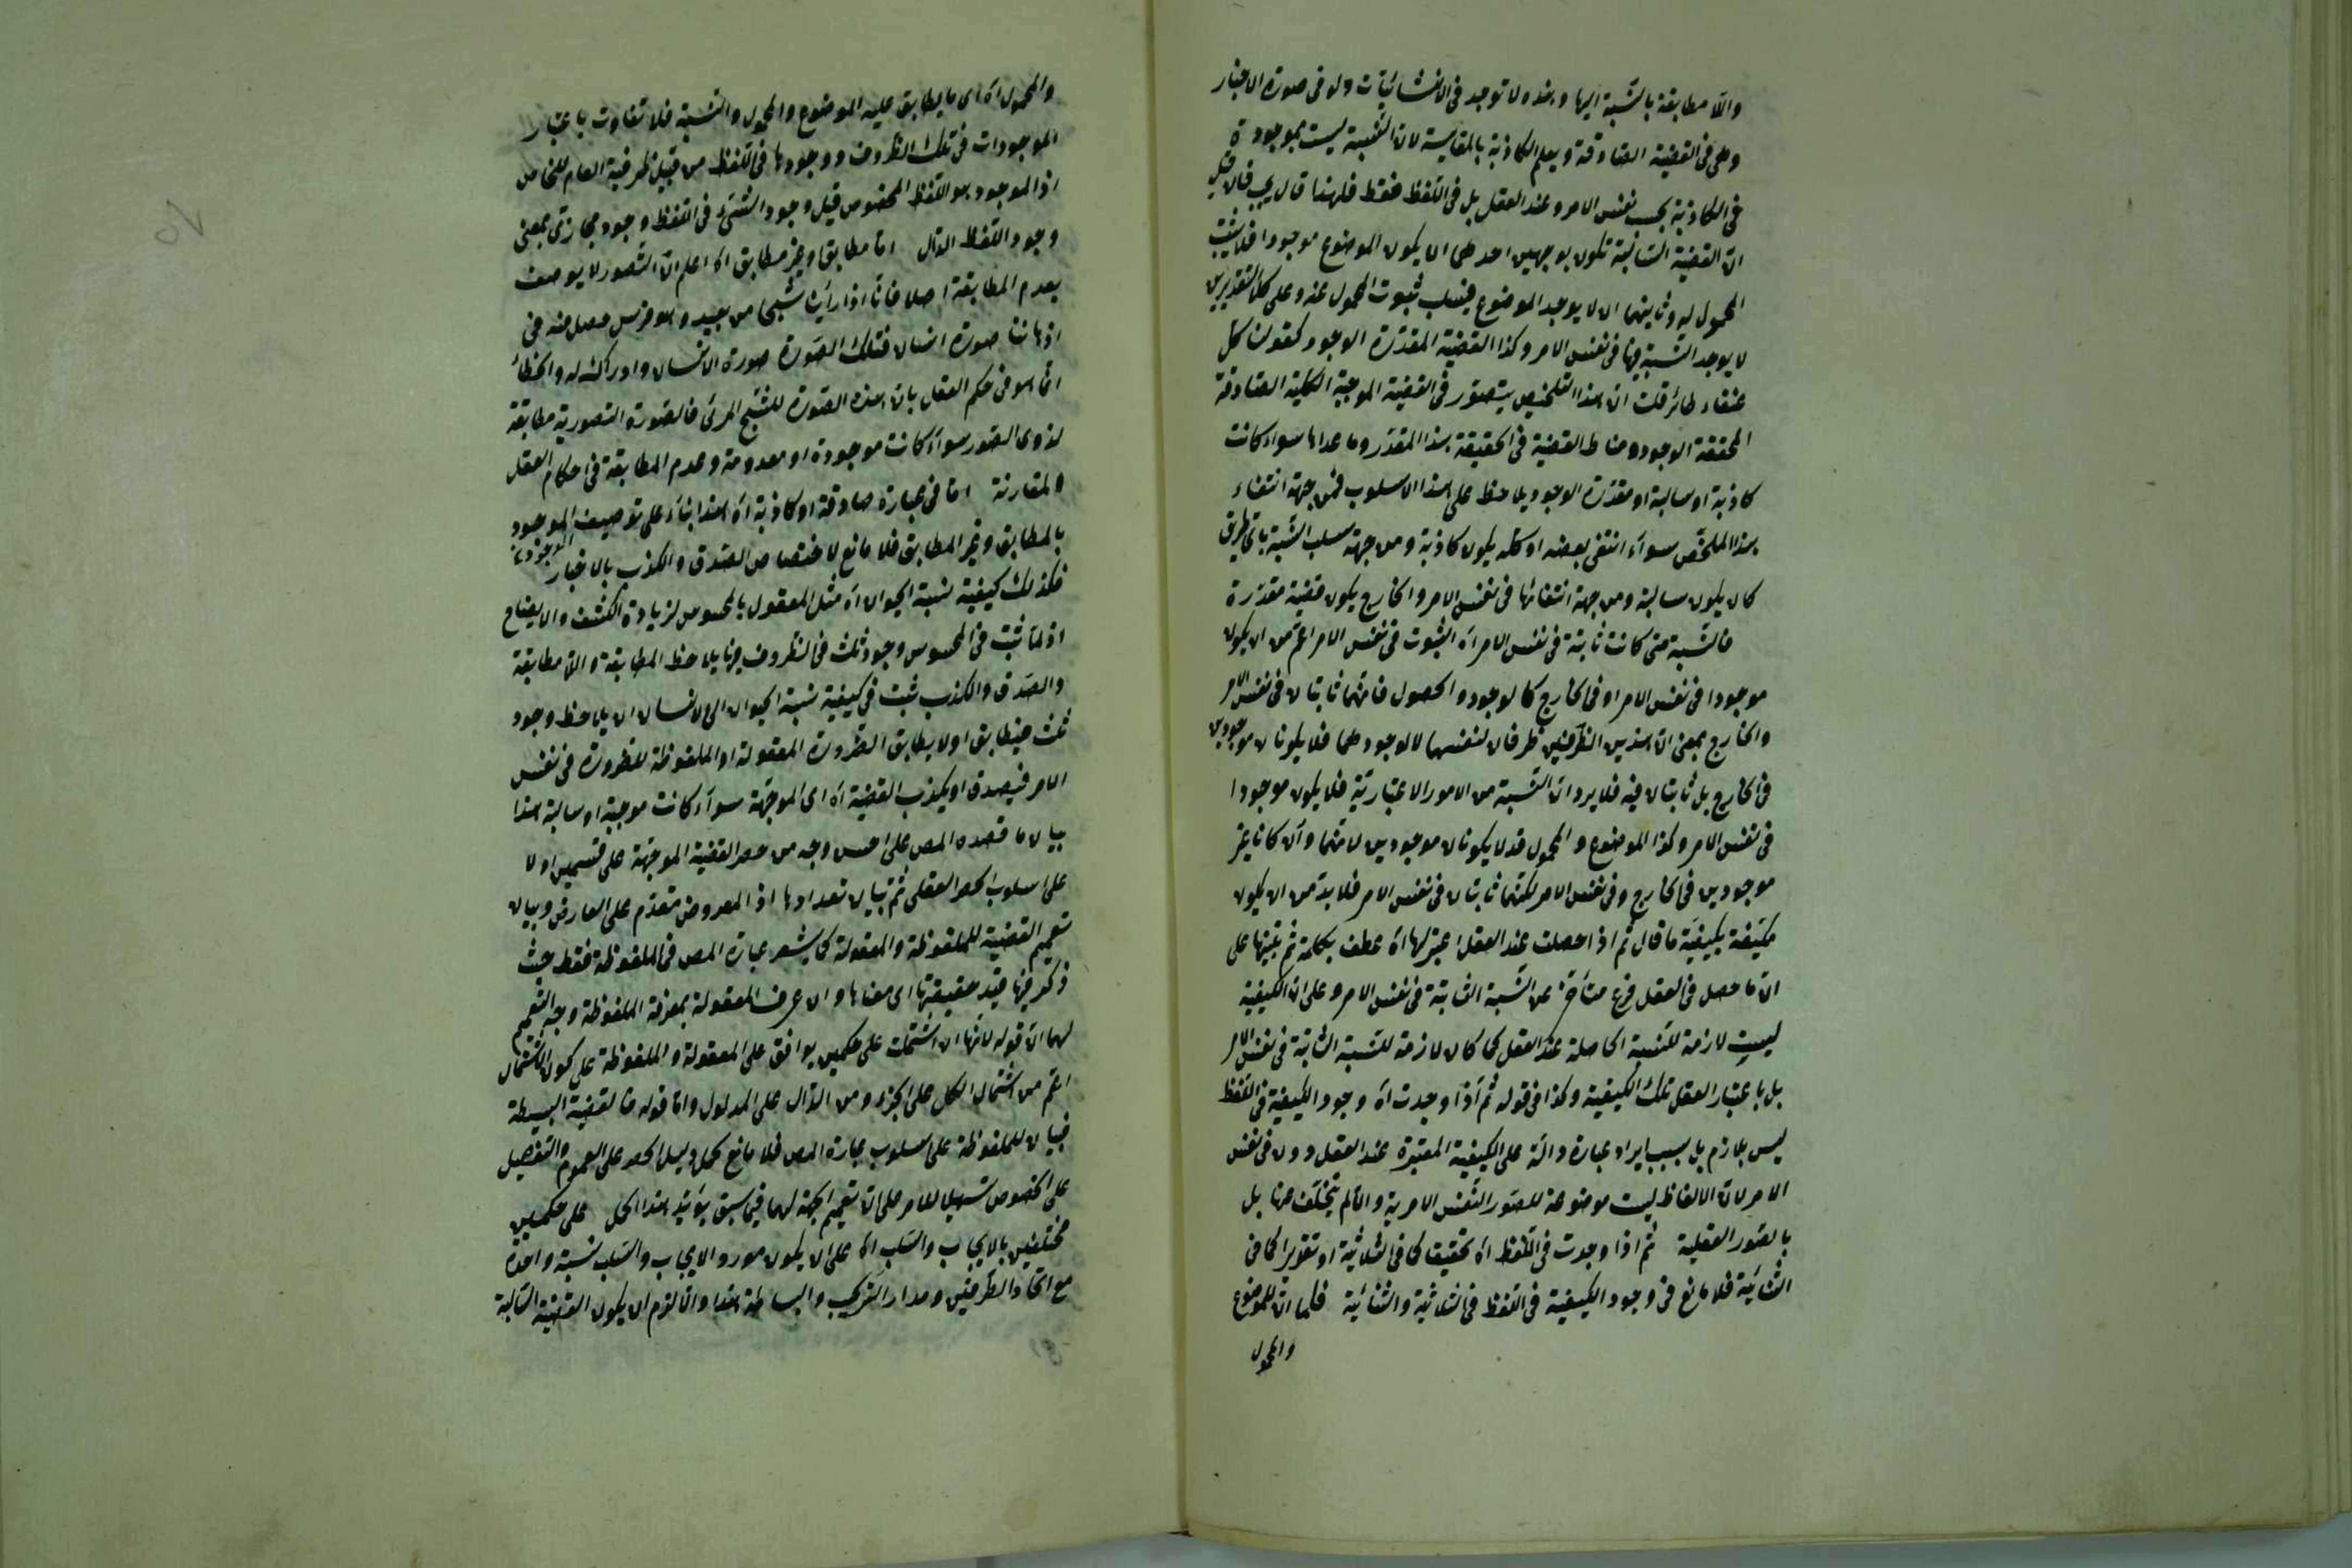 واللا مطابقة بالنسبة اليها وهذه لا توجد فى الانشائيات ولو فى صورة الاخبار
وهى فى القضية الصادقة ويعلم الكاذبة بالمقايسة لان النسبة ليست بموجودة
فى الكاذبة بحسب نفس الامر وعند العقل بل فى اللفظ فقط فلهذا قال يجب فان قيل
ان القضية السالبة تكون بوجهين احدهما ان يكون الموضوع موجودا فلا يثبت
المحمول له وثانيهما ان لا يوجد الموضوع فيسلب ثبوت المحمول عنه وعلى كلا التقديرين
لا يوجد النسبة فيها فى نفس الامر وكذا القضية المقدّرة الوجود كقولنا كل
عنقاء طائر قلت ان هذا التلخيص يتصور فى القضية الموجبة الكلية الصادقة
المحققة الوجود ومناط القضية فى الحقيقة هذا المقدّر وما عداها سواء كانت
كاذبة او سالبة او مقدّرة الوجود يلاحظ على هذا الاسلوب فمن جهة انتفاء
هذا الملخّص سواء انتفى بعضه او كله يكون كاذبة ومن جهة سلب النسبة باى طريق
كان يكون سالبة ومن جهة انتفائها فى نفس الامر والخارج يكون قضية مقدّرة
فالنسبة متى كانت ثابتة فى نفس الامر اه الثبوت فى نفس الامر اعم من ان يكون
موجودا فى نفس الامر او فى الخارج كالوجود والحصول فانهما ثابتان فى نفس الامر
والخارج بمعنى ان هذين الظرفين ظرفان لنفسهما لا لوجودهما فلا يكونان موجودين
فى الخارج بل ثابتان فيه فلا يرد ان النسبة من الامور الاعتبارية فلا يكون موجودا
فى نفس الامر وكذا الموضوع والمحمول قد لا يكونان موجودين لانهما وان كانا غير
موجودين فى الخارج وفى نفس الامر لكنهما ثابتان فى نفس الامر فلا بد من ان يكون
مكيّفة بكيفيّة ما قال ثم اذا حصلت عند العقل اعتبر لها اه عطف بكلمة ثم تنبيها على
ان ما حصل فى العقل فرع متأخر عن النسبة الثابتة فى نفس الامر وعلى ان الكيفية
ليست لازمة للنسبة الحاصلة عند العقل كما كان لازمة للنسبة الثابتة فى نفس الامر
بل باعتبار العقل تلك الكيفية وكذا فى قوله ثم اذا وجدت اه وجود الكيفية فى اللفظ
ليس بلازم بل بسبب ايراد عبارة دالة على الكيفية المعتبرة عند العقل دون فى نفس
الامر لان الالفاظ ليست موضوعة للصور النفس الامرية والا لم يتخلف عنها بل
بالصور العقلية ثم اذا وجدت فى اللفظ اه تحقيقا كما فى الثلاثية او تقديرا كما فى
الثنائية فلا مانع فى وجود الكيفية فى اللفظ فى الثلاثية والثنائية فكما ان للموضوع
والمحمول
والمحمول اه اى ما يطابق عليه الموضوع والمحمول والنسبة فلا تفاوت باعتبار
الموجودات فى تلك الظروف ووجودها فى اللفظ من قبيل ظرفية العام للخاص
اذ الموجود هو اللفظ المخصوص قيل وجود الشئ فى اللفظ وجود مجازى بمعنى
وجود اللفظ الدال اما مطابقا وغير مطابق الخ اعلم ان التصور لا يوصف
بعدم المطابقة اصلا فانا اذا رأينا شبحا من بعيد وهو فرس حصل منه فى
اذهاننا صورة انسان فتلك الصورة صورة الانسان وادراك له والخطأ
انما هو فى حكم العقل بان هذه الصورة للشبح المرئى فالصورة التصورية مطابقة
لذوى الصور سواء كانت موجودة او معدومة وعدم المطابقة فى احكام العقل
المقارنة اما فى عبارة صادقة او كاذبة اه هذا بناء على توصيف الموجود
بالمطابق وغير المطابق فلا مانع لاختصاص الصدق والكذب بالاخبار
فكذلك كيفية نسبة الحيوان اه مثل المعقول بالمحسوس لزيادة الكشف والايضاح
اذ لما ثبت فى المحسوس وجود ثلث فى الظروف فيها يلاحظ المطابقة واللا مطابقة
والصدق والكذب ثبت فى كيفية نسبة الحيوان الى الانسان ان يلاحظ وجود
ثلث فيطابق او لا يطابق الضرورة المعقولة او الملفوظة للضرورة فى نفس
الامر فيصدق او يكذب القضية اه اى الموجّهة سواء كانت موجبة او سالبة هذا
بيان ما قصده المص على احسن وجه من حصر القضية الموجّهة على قسمين اولا
على اسلوب الحصر العقلى ثم بيان تعدادها اذ المعروض مقدّم على العارض وبيان
تعميم القضية للملفوظة والمعقولة كما يشعر عبارة المص فى الملفوظة فقط حيث
ذكر فيها قيد حقيقتها اى معناها وان عرف المعقولة بمعرفة الملفوظة وجه التعميم
لهما ان قوله لانها ان اشتملت على حكمين يوافق على المعقولة والملفوظة على كون الاشتمال
اعم من اشتمال الكل على الجزء ومن الدال على المدلول واما قوله فالقضية البسيطة
فبيان للملفوظة على اسلوب عبارة المص فلا مانع لحمل دليل الحصر على العموم والتفصيل
على الخصوص تسهيلا للامر على ان تعميم الجهة لهما فيما سبق يؤيد هذا الحمل على حكمين
مختلفين بالايجاب والسلب الخ على ان يكون مورد الايجاب والسلب نسبة واحدة
مع اتحاد الطرفين ومدار التركيب والبساطة هذا والا لزم ان يكون القضية السالبة